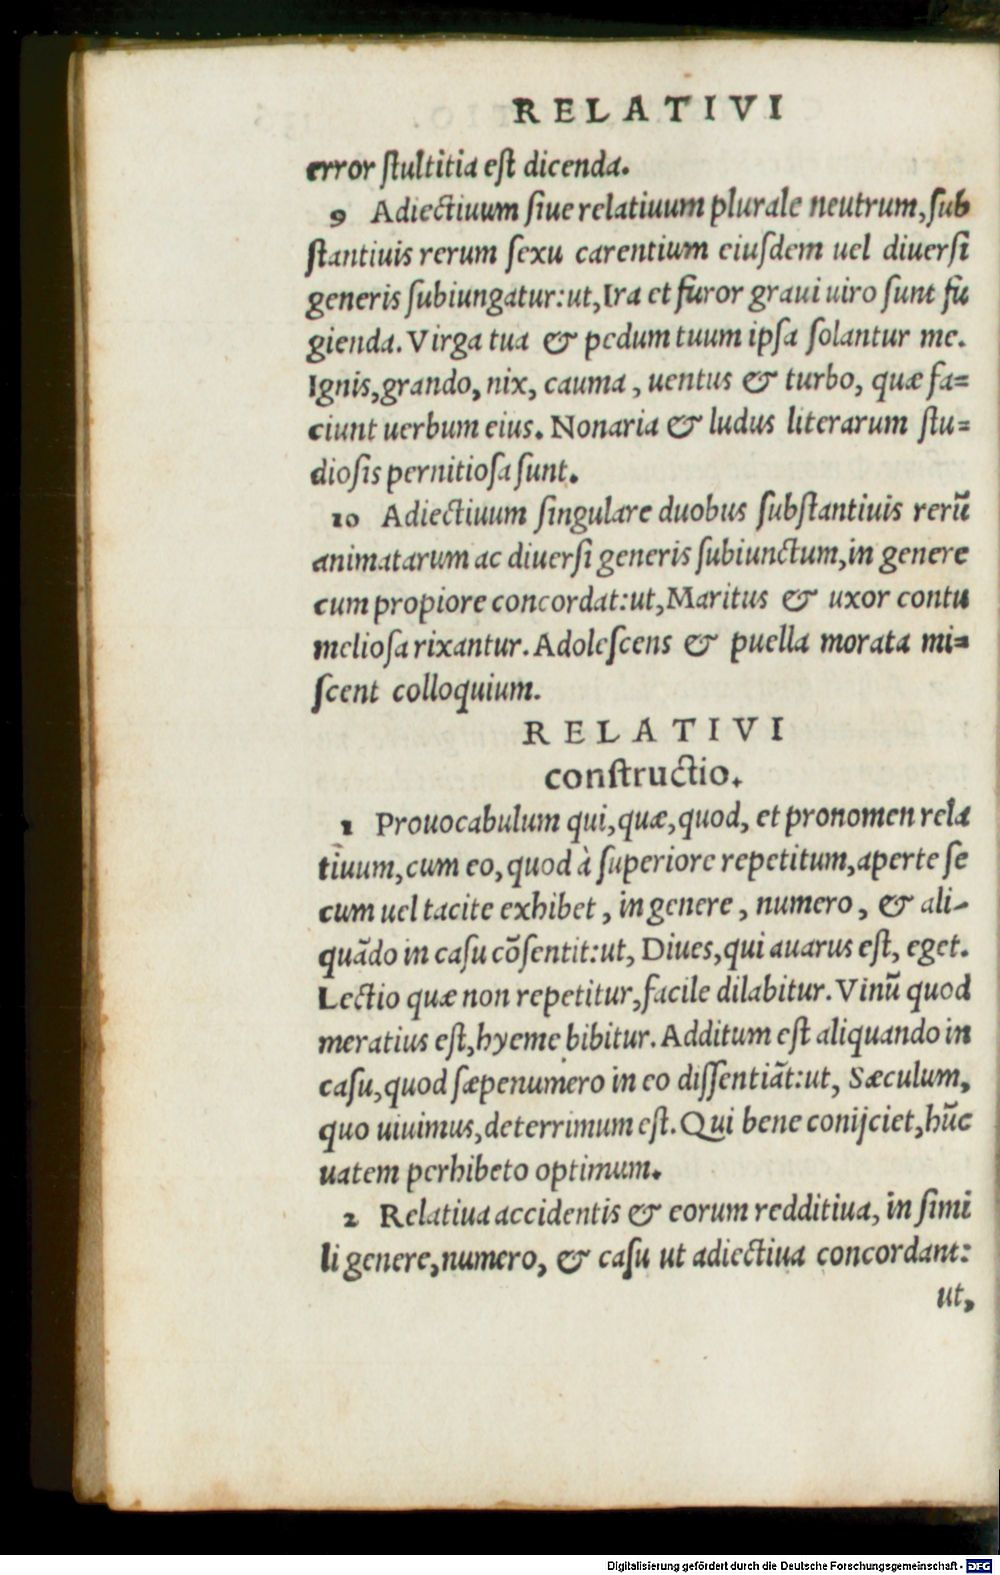 RELATIVI
error ſtultitia eſt dicenda.
9 Adiectiuum ſiue relatiuum plurale neutrum, ſub
ſtantiuis rerum ſexu carentium eiuſdem uel diuerſi
generis ſubiungatur: ut, Ira et furor graui uiro ſunt fu
gienda. Virga tua & pedum tuum ipſa ſolantur me.
Ignis, grando, nix, cauma, uentus & turbo, quæ fa=
ciunt uerbum eius. Nonaria & ludus literarum ſtu=
dioſis pernitioſa ſunt.
10 Adiectiuum ſingulare duobus ſubſtantiuis rerū
animatarum ac diuerſi generis ſubiunctum, in genere
cum propiore concordat: ut, Maritus & uxor contu
melioſa rixantur. Adoleſcens & puella morata mi=
ſcent colloquium.
RELATIVI
conſtructio.
1 Prouocabulum qui, quæ, quod, et pronomen rela
tiuum, cum eo, quod à ſuperiore repetitum, aperte ſe
cum uel tacite exhibet, in genere, numero, & ali-
quādo in caſu cōſentit: ut, Diues, qui auarus eſt, eget.
Lectio quæ non repetitur, facile dilabitur. Vinū quod
meratius eſt, hyeme bibitur. Additum eſt aliquando in
caſu, quod ſæpenumero in eo diſſentiāt: ut, Sæculum,
quo uiuimus, deterrimum eſt. Qui bene conijciet, hūc
uatem perhibeto optimum.
2 Relatiua accidentis & eorum redditiua, in ſimi
li genere, numero, & caſu ut adiectiua concordant:
ut,
Digitalisierung gefördert durch die Deutsche Forschungsgemeinschaft - DFG